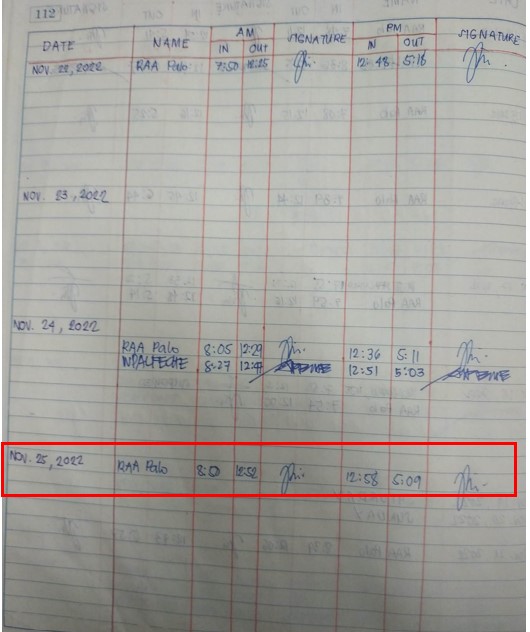 112
AM PM
DATE NAME IN OUT SIGNATURE IN OUT SIGNATURE
NOV. 22, 2022 RAA Palo 7:50 12:48 5:18
NOV. 23, 2022
NOV. 24, 2022
RAA Palo 8:05 12:29 12:36 5:11
8:27 12:51 5:03
NOV. 25, 2022
RAA Palo 12:52 12:58 5:09